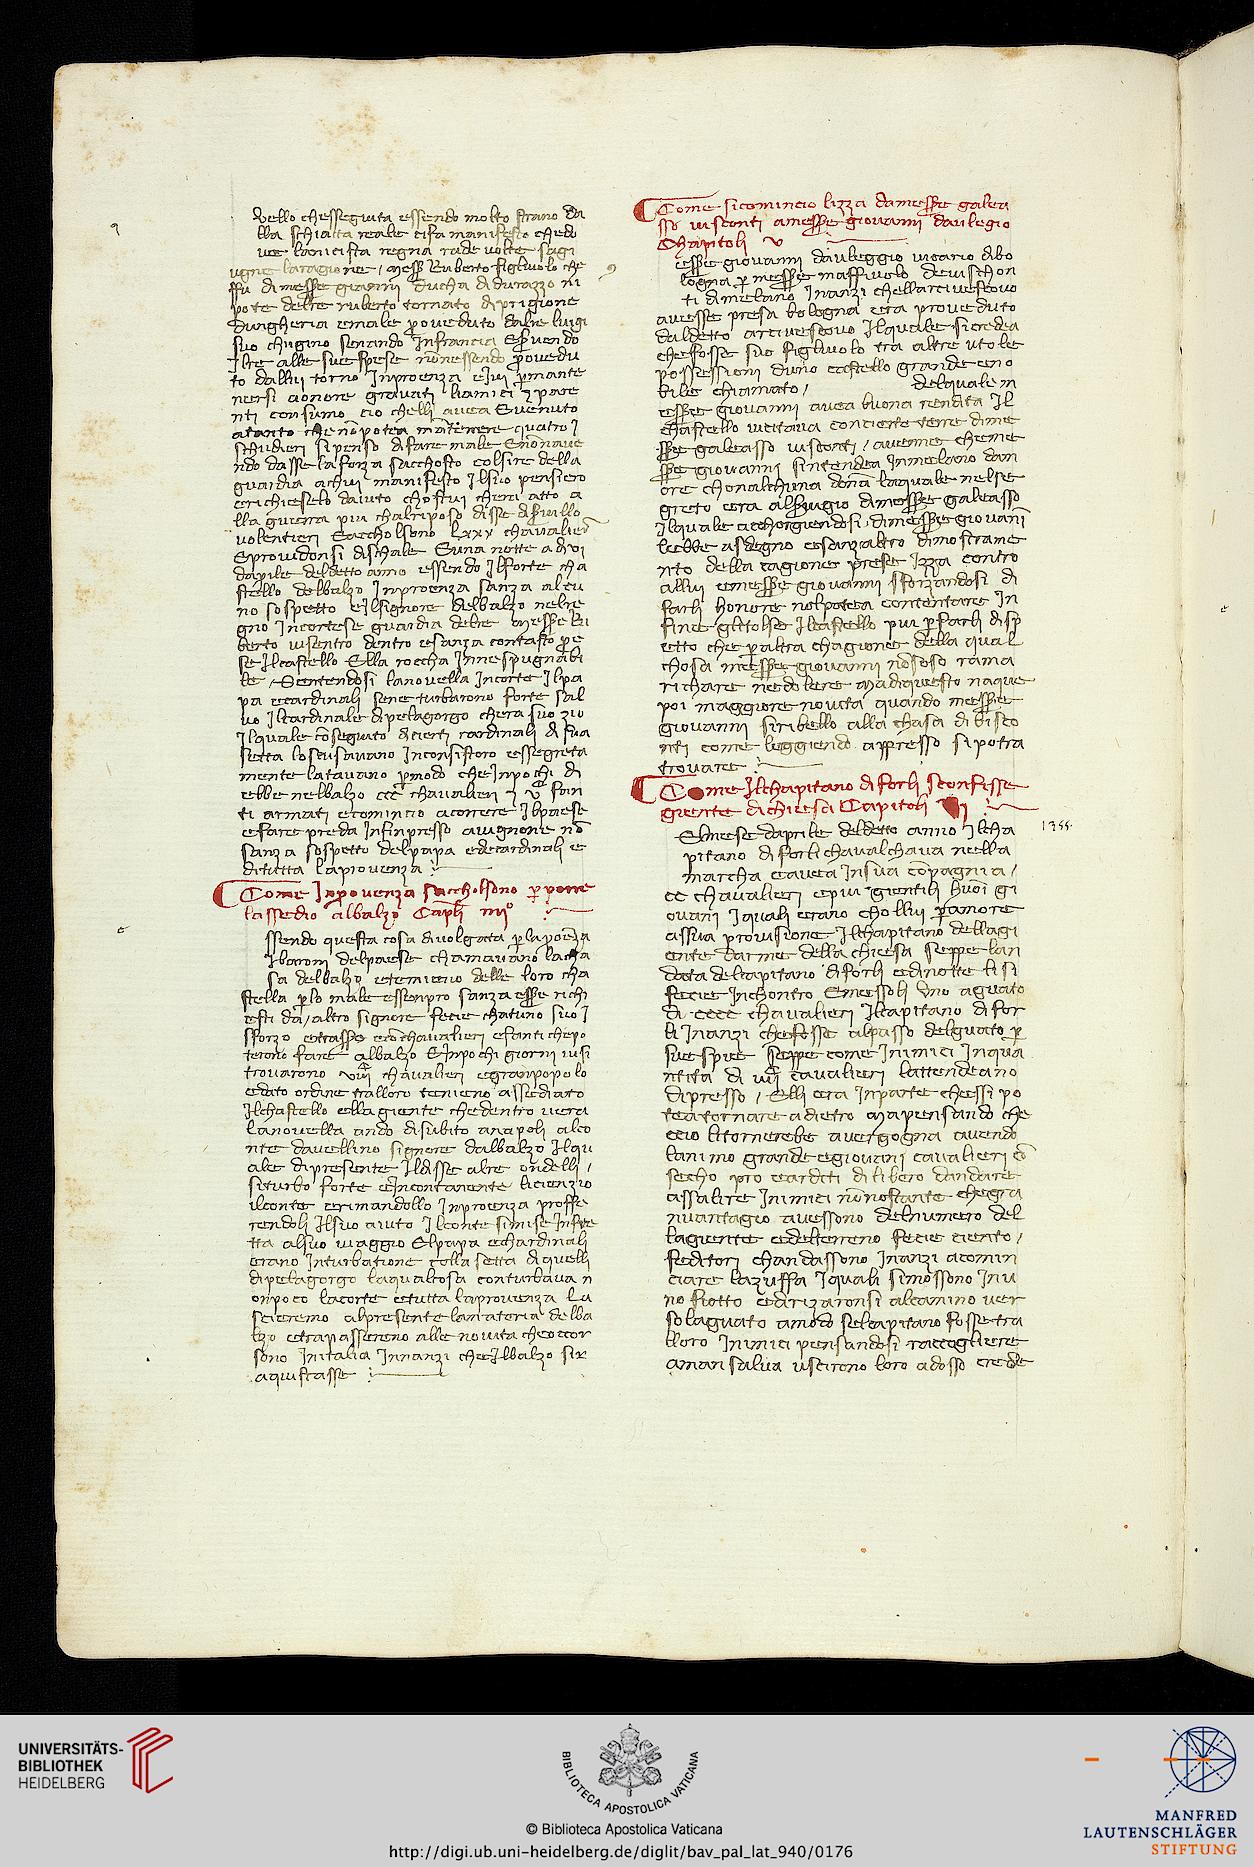 Vello chesseguita essendo molto strano da
lla schiatta reale cifa manifesto chedo
ve lanicista regna rade volte sagi
ugne laragione / messer Ruberto figliuolo che
ffu dimesser gianni ducha di durazzo ni
pote delre ruberto tornato diprigione
dungheria emale proveduto dalre luigi
suo chugino senando infrancia Eservendo
Ilre alle suespese nonessendo provedu
to dallui torno Inproenza eIvi permante
nersi aonore gravati liamici 7 pare
nti consumo cio chelli avea Evenuto
atanto che nonpotea mantenere quatro I
schudieri sipenso difare male Enonnave
ndo dasse laforza sacchosto colsire della
guardia achui manifesto Ilsuo pensiero
erichieselo daiuto chostui chera atto a
lla guerra piu chalriposo disse diservillo
volentieri Eaccholsono lxxx chavalieri
Eprovidonsi dischale Euna notte adi vi
daprile deldetto anno essendo Ilforte cha
stello delbalzo Inproenza sanza alcu
no sospetto eIlsignore delbalzo nelre
gno Incortese guardia delre messer Ru
berto visentro dentro esanza contasto pre
se Ilcastello Ella roccha Innespugnabi
le / Sentendosi lanovella Incorte Ilpa
pa ecardinali sene turbarono forte sal
vo Ilcardinale dipelagorgo chera suo zio
Ilquale coseguito dicierti cardinali di sua
setta loscusavano Inconsistoro essegreta
mente latavano permodo cheInpochi di
ebbe nelbalzo ccc chavalieri 7 vc fan
ti armati ecomincio acorrere Ilpaese
efare preda Infinpresso avignone non
sanza sospetto delpapa edecardinali e
ditutta laprovenza
Come Inprovenza saccholsono per porre
lassedio albalzo Caplo iiiio
ssendo questa cosa divolgata perlaproenza
Ibaroni delpaese chamavano lacha
sa delbalzo etemieno delle loro cha
stella perlo male essenpro sanza essere richi
esti da/altro signore fecie chatuno suo I
sforzo
terono fare albalzo EInpochi giorni visi
trovarono viiic chavalieri egranpopolo
edato ordine tralloro tenieno assediato
Ilchastello ella giente chedentro viera
lanovella ando disubito anapoli alco
nte davellino signore dalbalzo Ilqu
ale dipresente Ildisse alre ondelli /
siturbo forte eIncontanente licienzio
ilconte erimandollo Inproenza proffe
rendoli Ilsuo aiuto Ilconte simise Infre
tta alsuo viaggio Elpapa echardinali
erano Inturbatione colla setta diquelli
dipelagorgo laqualcosa conturbava n
onpoco lacorte etutta laprovenza La
sceremo alpresente lamatoria delba
lzo etrapassereno alle novita cheoccor
sono Initalia Innanzi cheIlbalzo sir
aquistasse
Come sicomincio lizza damessere galea
sso visconti amessere giovanni davlegio
Chapitoli v
essere giovanni davleggio vicario dibo
logna per messere maffivolo devischon
ti dimelano Inanzi chellarcivescovo
avesse presa bologna era proveduto
daldetto arcivescovo Ilquale sicredea
chefosse suo figlivolo tra altre utole
possessioni duno castello grande eno
bile chiamato / delquale m
essere giovanni avea buona rendita Il
chastello vicitava concierte terre dime
ssere galeasso visconti / avenne cheme
ssere giovanni sintendea Inmelano dan
ore chonalchuna donna laquale nelse
greto era alservigio dimessere galeasso
Ilquale acchorgiendosi dimessere giovanni
lebbe asdegno esanzaltro dimostrame
nto della cagione prese Izza contro
allui emessere giovanni sforzandosi di
farli honore nolpotea contentare In
fine glitolse Ilcastello piu perfarli disp
etto che peraltra chagione della qual
chosa messere giovanni nonsoso rama
richare nedolere madiquesto naque
poi maggiore novita quando messere
giovanni siribello alla chasa di bisco
nti come leggiendo appresso sipotra
trovare
Come Ilchapitano di forli sconfisse
giente dichiesa Capitoli vi
Elmese daprile deldetto anno Ilcha
pitano diforli chavalchava nella
marcha eavea Insua compagnia /
cc chavalieri epiu gientili huomini gi
ovani Iquali erano chollui peramore
assua provisione Ilchapitano dellagi
ente darme della chiesa seppe lan
data delcapitano diforli edinotte lisi
fecie Inchontro Emessoli uno aguato
di cccc chavalieri Ilcapitano difor
li Inanzi chefosse alpasso delguato per
sue spie seppe come Inimici Inqua
ntita di iiiic cavalieri lattendeano
dipresso / Elli era Inparte chessi po
tea tornare adietro mapensando che
ccio litornerebe avergogna avendo
lanimo grande egiovani cavalieri con
secho pro earditi dilibero dandare
assalire Inimici nonnostante chegra
nvantagio avessono delnumero del
lagiente edelterreno fecie ciento /
feditori chandassono Inanzi acomin
ciare lazuffa Iquali simossono Inu
no fiotto edirizaronsi alcamino ver
solaguato amodo selcapitano fossetra
lloro Inimici pensandosi raccogliere
aman salva uscirono loro adosso crede
1355
UNIVERSITÄTS-
BIBLIOTHEK
HEIDELBERG
BIBLIOTECA APOSTOLICA VATICANA
© Biblioteca Apostolica Vaticana
http://digi.ub.uni-heidelberg.de/diglit/bav_pal_lat_940/0176
MANFRED
LAUTENSCHLÄGER
STIFTUNG